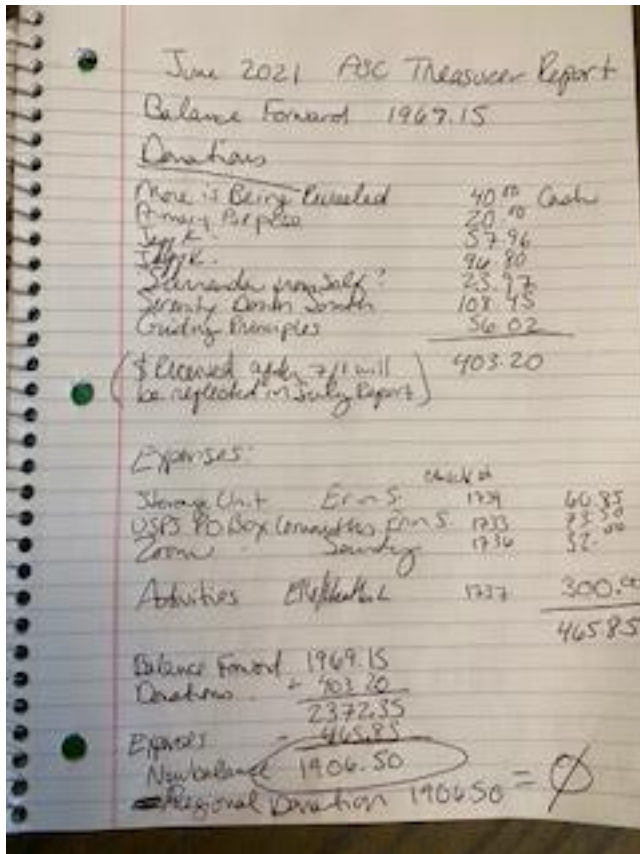 June 2021 ASC Treasurer Report
Balance Forward 1969.15
Donations
More is Being Revealed 40.00 Cash
Primary Purpose 20.00
Jeff K. 57.96
K. 96.80
Surrender from Self? 23.97
Serenity Down South 108.45
Guiding Principles 56.02
403.20
($ Received after 7/1 will
be reflected in July Report)
Expenses:
Check #
Storage Unit Erin S. 1739 60.85
USPS PO Box Committee Erin S. 1733 73.00
Zoom 1736 32.00
Activities 1737 300.00
465.85
Balance Forward 1969.15
Donations + 403.20
2372.35
Expenses - 465.85
New balance 1906.50
Regional Donation 1906.50 = Ø